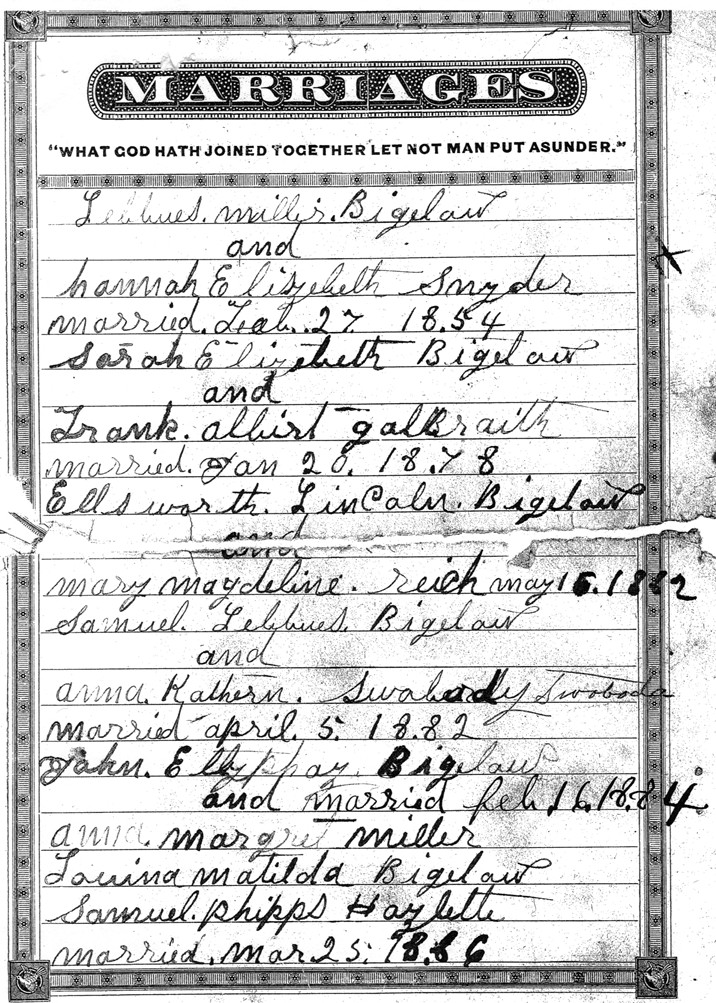 MARRIAGES
"WHAT GOD HATH JOINED TOGETHER LET NOT MAN PUT ASUNDER."
Lebbues. miller. Bigelow
and
hannah Elizebeth Snyder
married. Feb. 27 18.54
Sarah Elizebeth Bigelow
and
Frank. albirt galbraith
married. Jan 20. 18.78
Ellsworth. LinColn. Bigelow
and
mary magdeline. reich may 15. 1882
Samuel. Lebbues. Bigelow
and
anna. Kathern. Swabody Swoboda
married april. 5. 18.82
John. Ellyphay. Bigelow
and married feb 16. 18.84
anna. margret miller
Louina matilda Bigelow
Samuel. phipps Hazlette
married. mar 25. 18.86